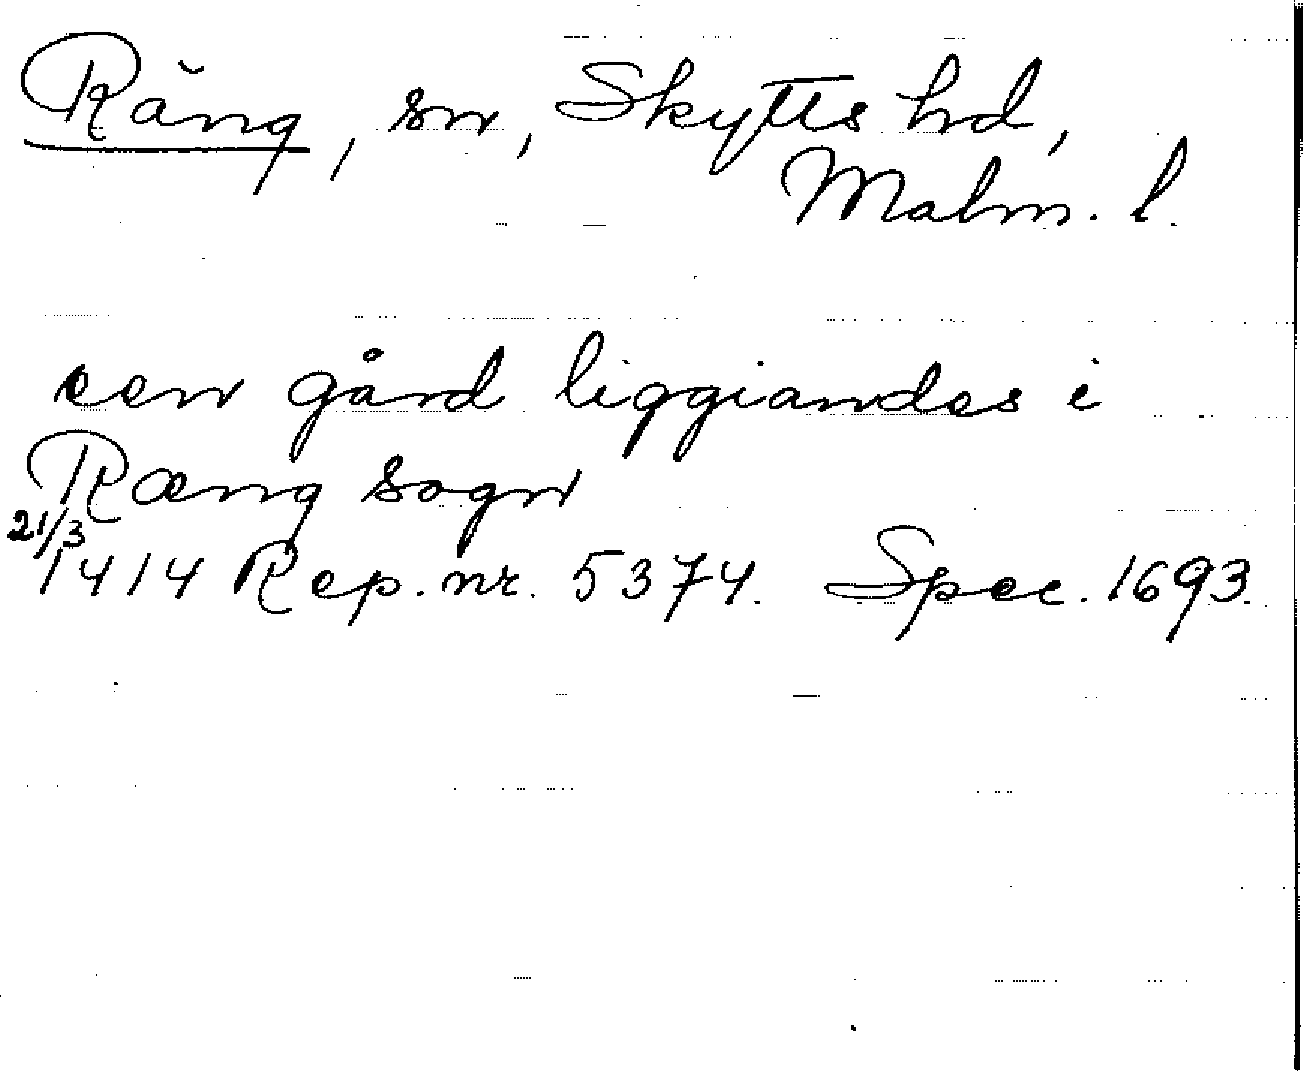 Räng, sn, Skytts hd,
Malm. l.
een gård liggiandes i
Ræng sogn
21/3
1414 Rep. nr. 5374. Spec. 1693.